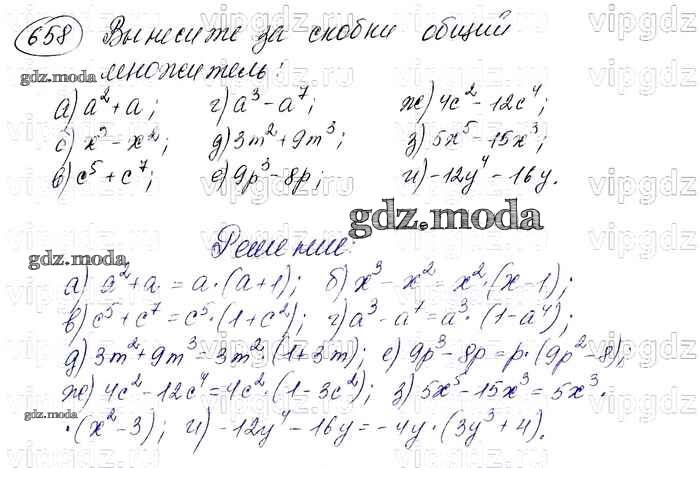 658 Вынесите за скобки общий
множитель:
а) a² + a; г) a³ - a⁷; ж) 4c² - 12c⁴;
б) x³ - x²; д) 3m² + 9m³; з) 5x⁵ - 15x³;
в) c⁵ + c⁷; е) 9p³ - 8p; и) -12y⁴ - 16y.
Решение:
а) a² + a = a · (a + 1); б) x³ - x² = x² · (x - 1);
в) c⁵ + c⁷ = c⁵ · (1 + c²); г) a³ - a⁷ = a³ · (1 - a⁴);
д) 3m² + 9m³ = 3m² · (1 + 3m); е) 9p³ - 8p = p · (9p² - 8);
ж) 4c² - 12c⁴ = 4c² · (1 - 3c²); з) 5x⁵ - 15x³ = 5x³ ·
· (x² - 3); и) -12y⁴ - 16y = -4y · (3y³ + 4).
gdz.moda
gdz.moda
gdz.moda
gdz.moda
vipgdz